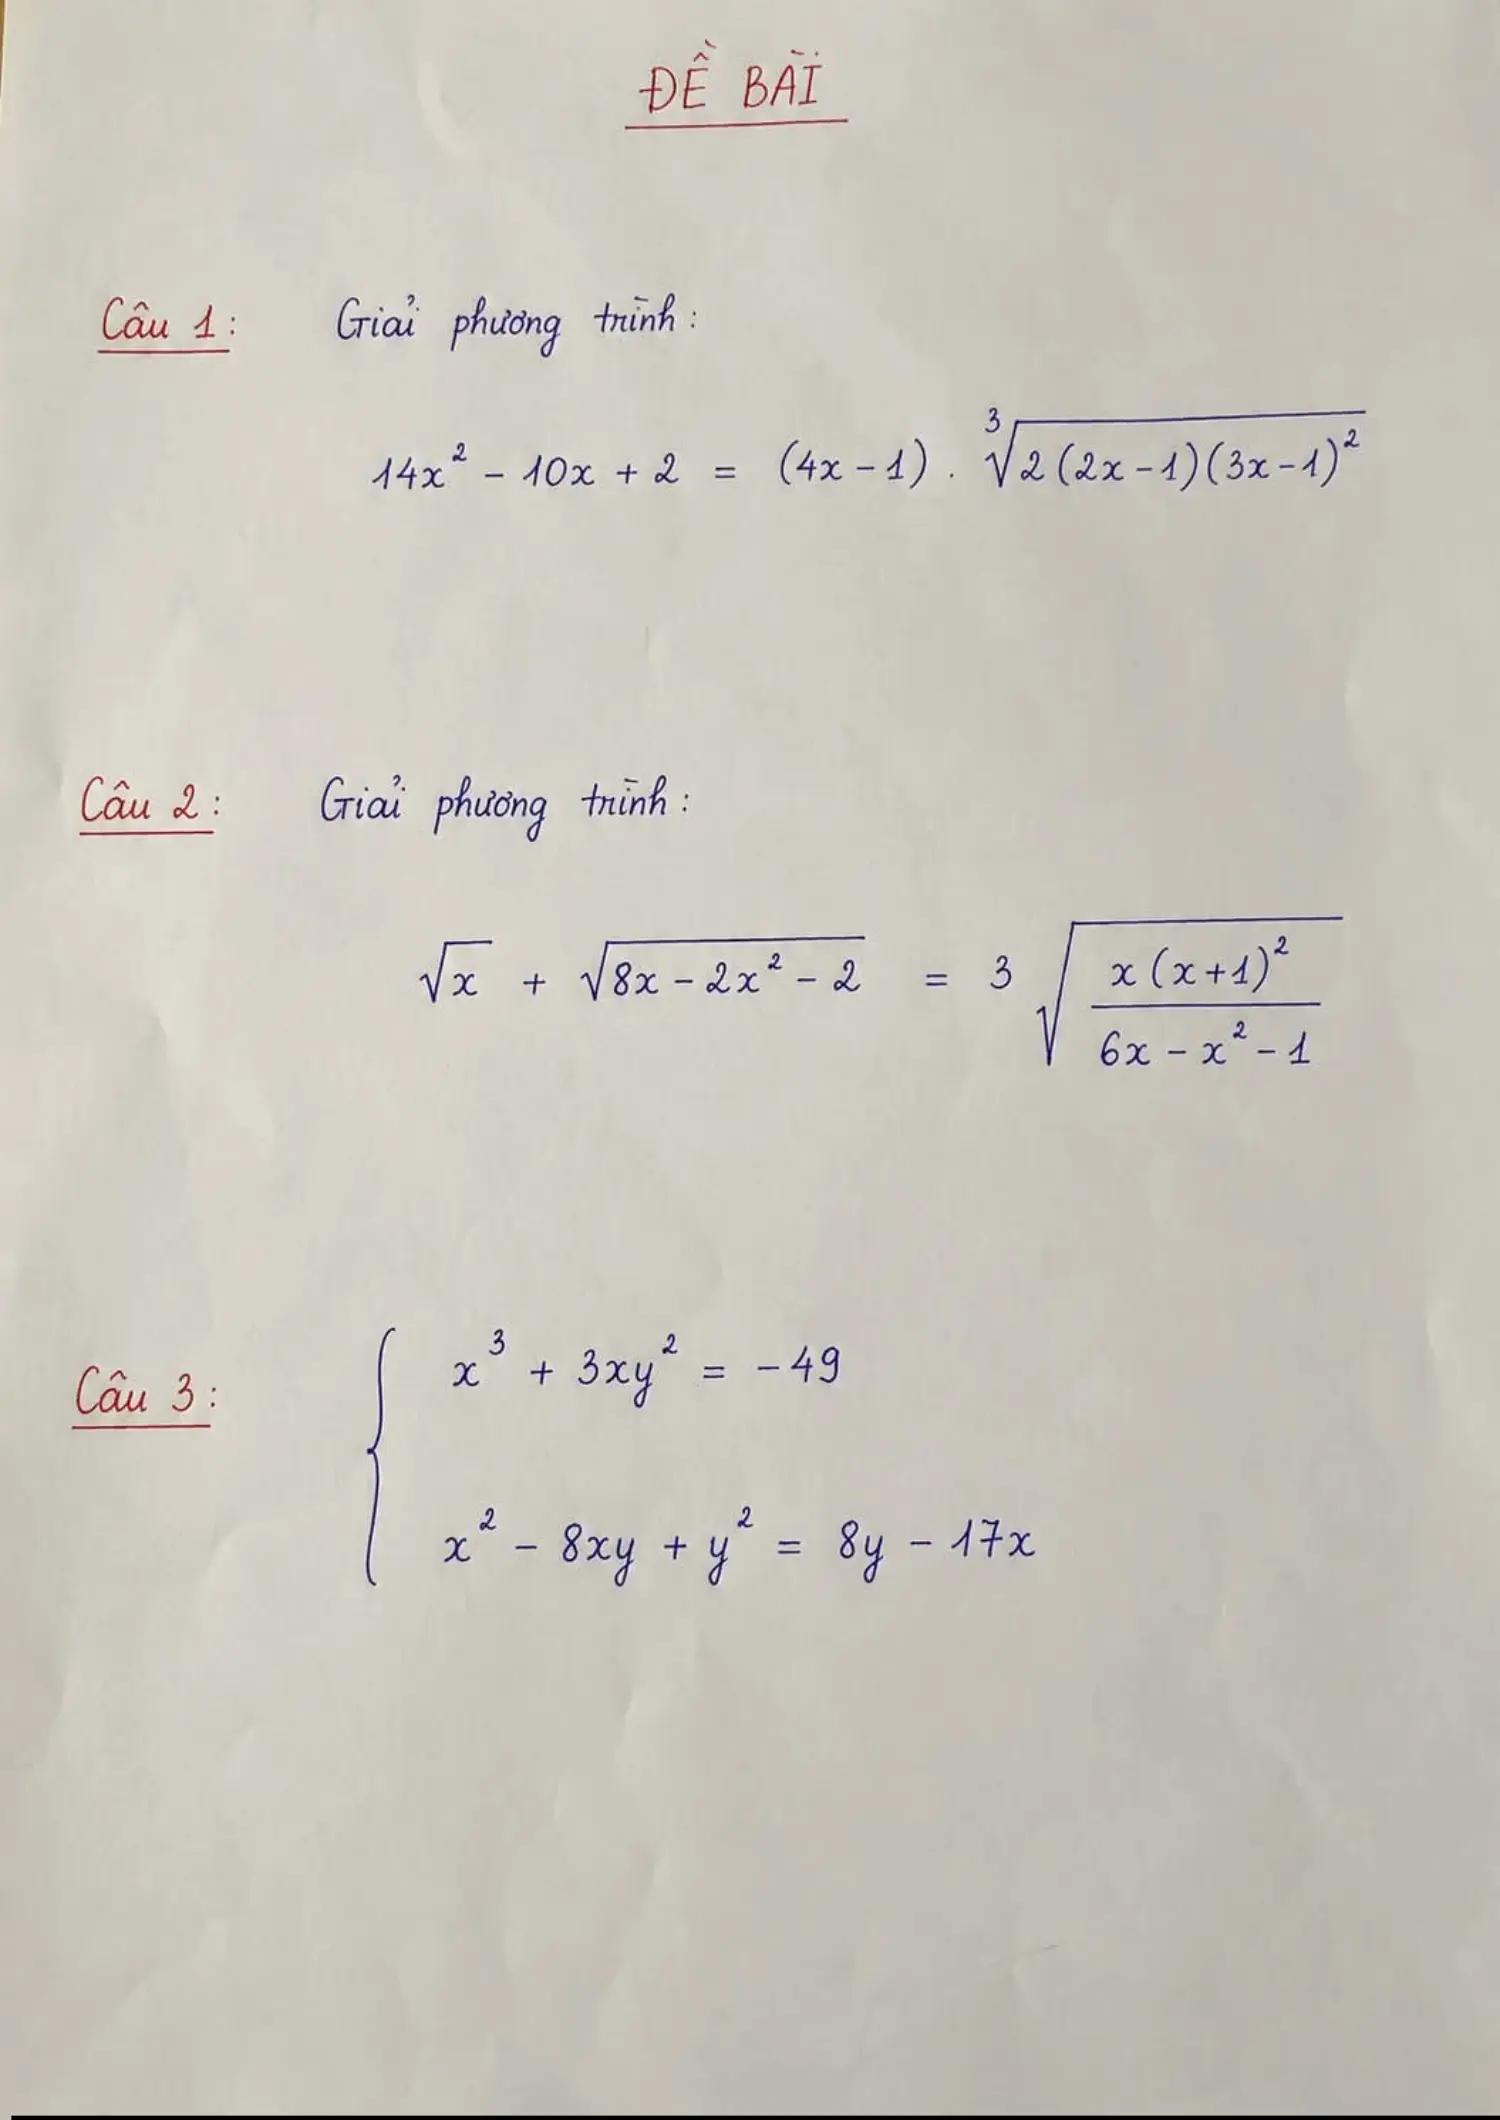 ĐỀ BÀI
Câu 1: Giải phương trình:
14x² - 10x + 2 = (4x - 1) . ∛(2(2x - 1)(3x - 1)²)
Câu 2: Giải phương trình:
√x + √(8x - 2x² - 2) = 3√(x(x+1)² / (6x - x² - 1))
Câu 3: { x³ + 3xy² = -49
x² - 8xy + y² = 8y - 17x